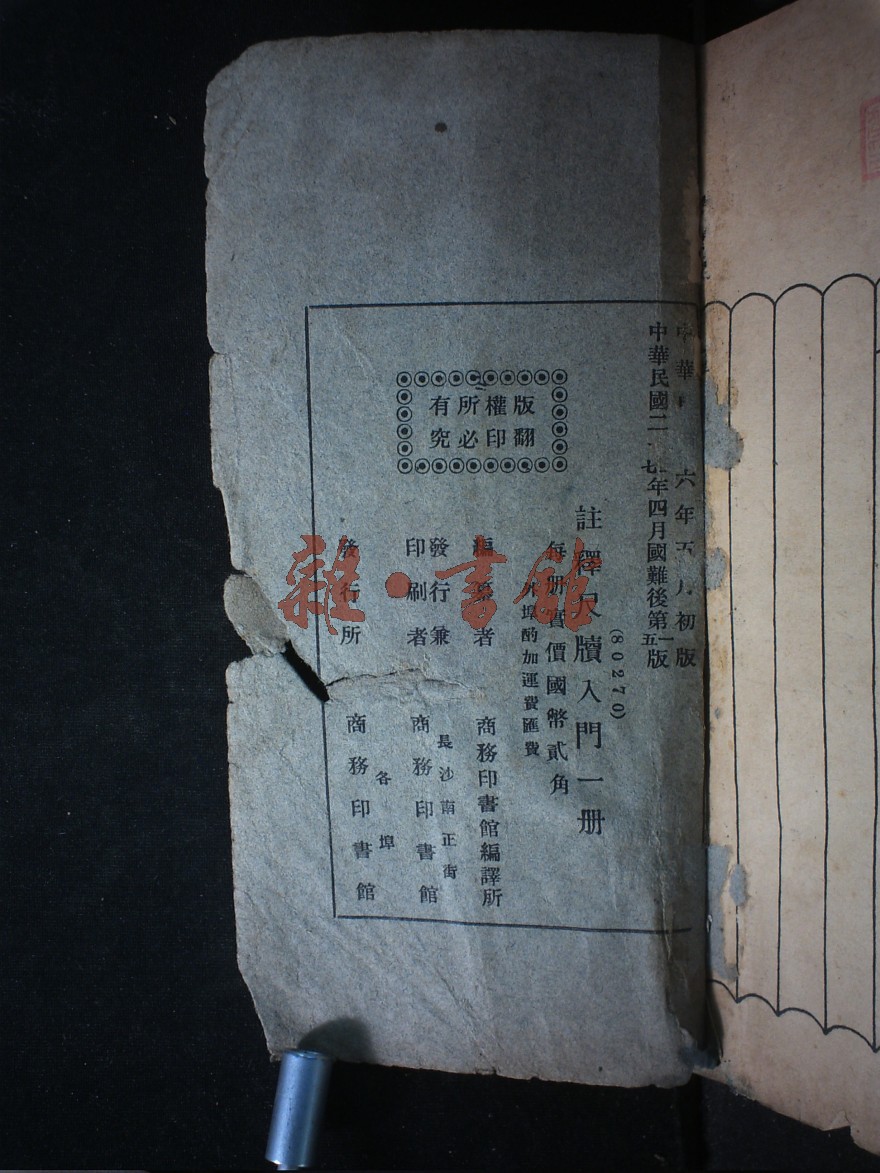 中華六年五月初版
中華民國二七年四月國難後第一版
五
(80270)
註釋尺牘入門一册
每册實價國幣貳角
外埠酌加運費匯費
版權所有
翻印必究
編纂者 商務印書館編譯所
發行兼印刷者 長沙南正街 商務印書館
發行所 各埠 商務印書館
雜·書館